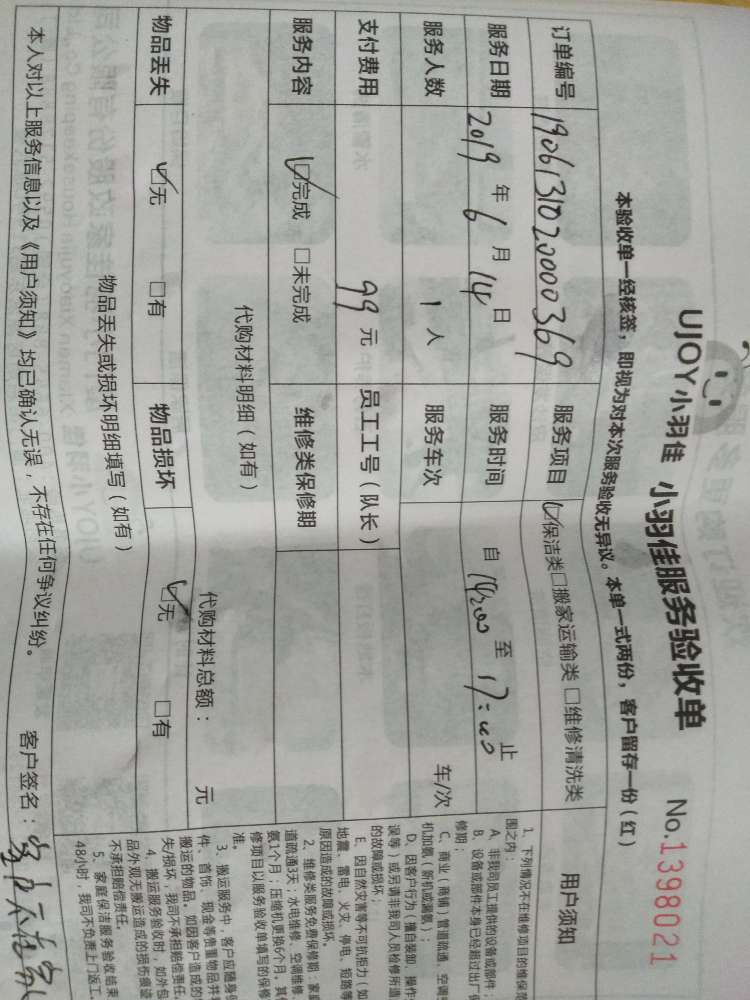 UJOY小羽佳 小羽佳服务验收单 No.1398021
本验收单一经核签，即视为对本次服务验收无异议。本单一式两份，客户留存一份（红）
订单编号 1906131020000369 服务项目 保洁类 □搬家运输类 □维修清洗类
服务日期 2019 年 6 月 14 日 服务时间 自 14:00 至 17:00 止
服务人数 1 人 服务车次 车/次
支付费用 99 元 员工工号（队长）
服务内容 □完成 □未完成 维修类保修期
代购材料明细（如有） 代购材料总额： 元
物品丢失 □无 □有 物品损坏 □无 □有
物品丢失或损坏明细填写（如有）
本人对以上服务信息以及《用户须知》均已确认无误，不存在任何争议纠纷。 客户签名：
用户须知
1、下列情况不在维修项目的维保范
围之内：
A、非我司员工提供的设备或部件；
B、设备或部件本身已经超过出厂
修期；
C、商业（商铺）管道疏通、空调
机加氨（新机或漏氨）；
D、因客户行为（擅自装卸、操作
误等）或另请非我司人员检修所造
的故障或损坏；
E、因自然灾害等不可抗拒力（如
地震、雷电、火灾、停电、短路等
原因造成的故障或损坏。
2、维修类服务免费保修期：家
道疏通3天；水电维修、空调维修、
氨1个月；压缩机更换6个月。其
修项目以服务验收单填写的保修
准。
3、搬运服务中，客户应随身
件、首饰、现金等贵重物品并
搬运的物品。如因客户造成的
失/损坏，我司不承担赔偿责任
4、搬运服务验收时，如外包
品外观无搬运造成的损伤痕迹
不承担赔偿责任。
5、家庭保洁服务验收结束
48小时，我司不负责上门返工